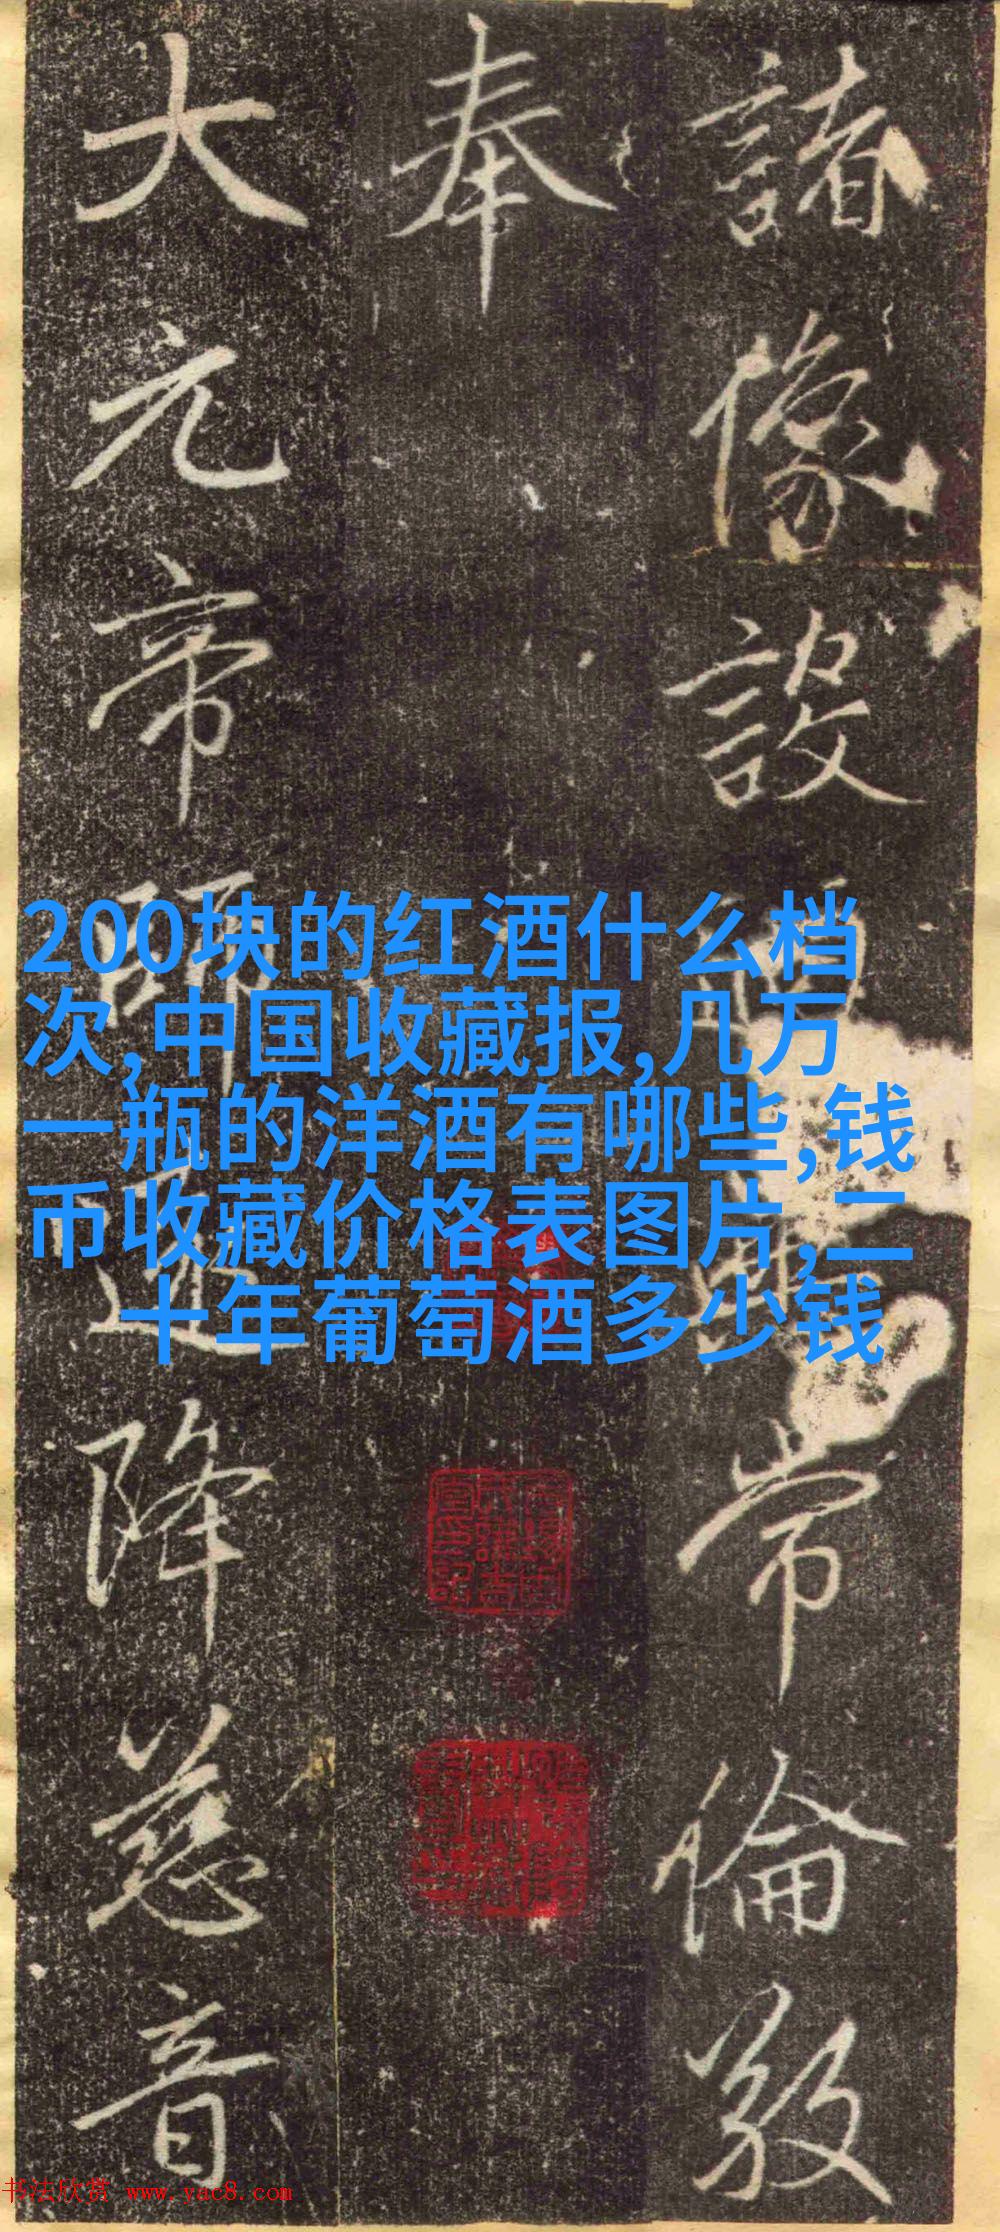 諸像設常倫
奉
大元帝師降慈音
200块的红酒什么档
次,中国收藏报,几万
一瓶的洋酒有哪些,钱
币收藏价格表图片,二
十年葡萄酒多少钱
书法欣赏 www.yac8.com